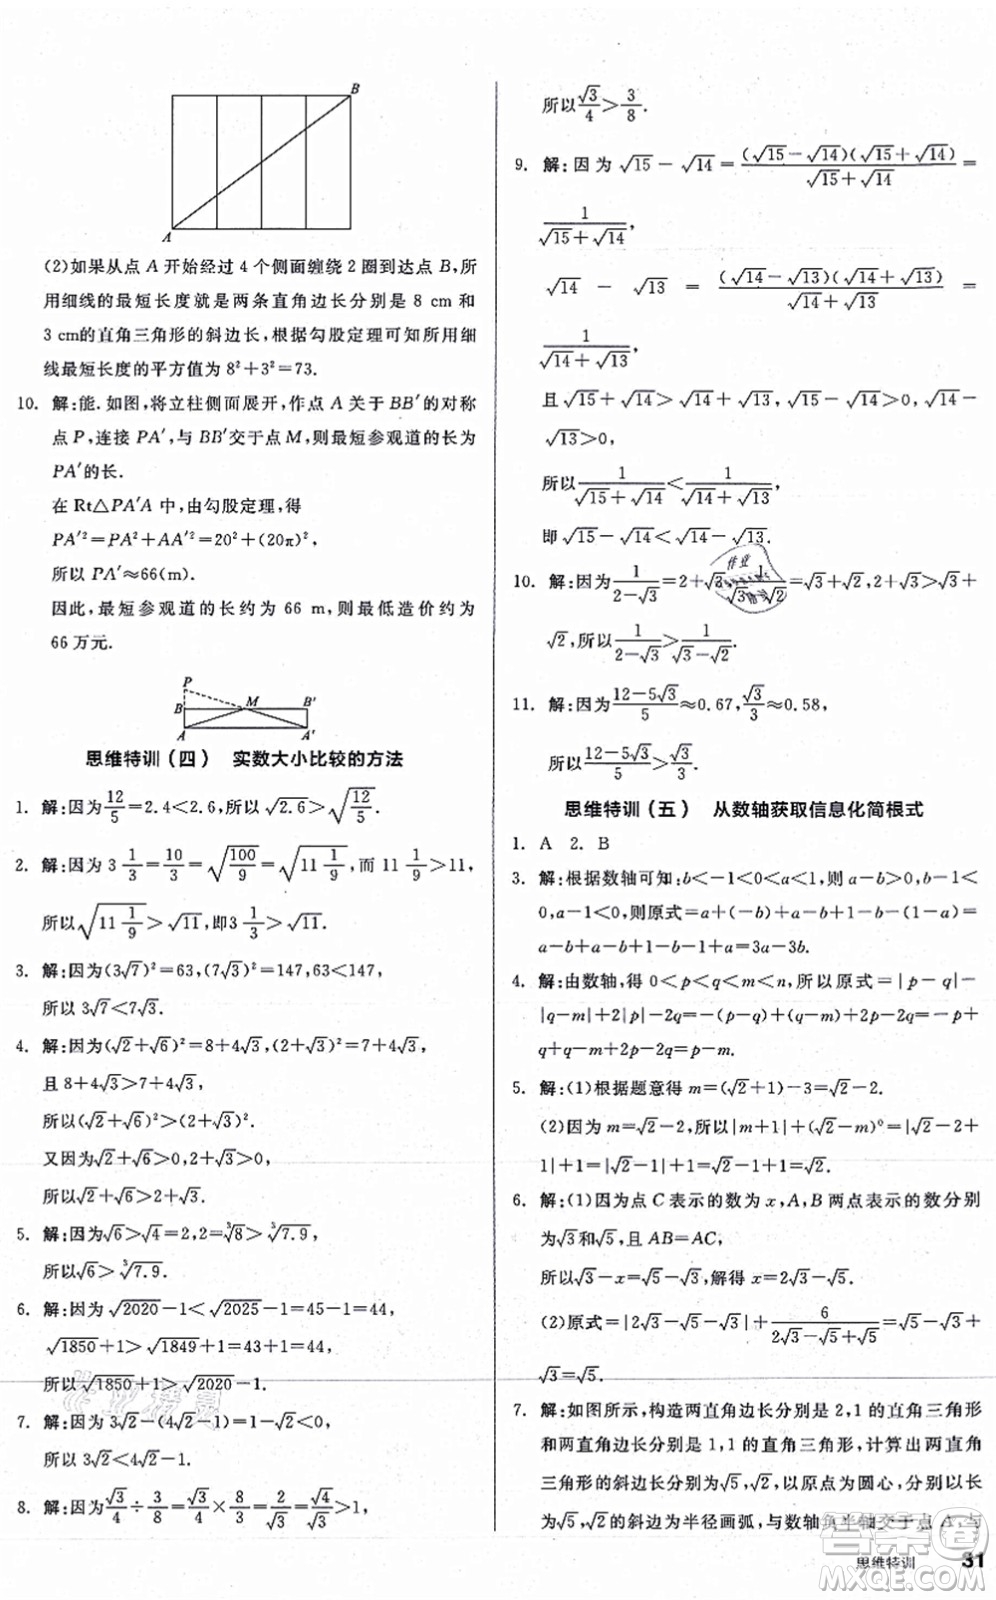 B
A
(2)如果从点 A 开始经过 4 个侧面缠绕 2 圈到达点 B,所
用细线的最短长度就是两条直角边长分别是 8 cm 和
3 cm的直角三角形的斜边长,根据勾股定理可知所用细
线最短长度的平方值为 8²+3²=73.
10. 解:能.如图,将立柱侧面展开,作点 A 关于 BB′的对称
点 P,连接 PA′,与 BB′交于点 M,则最短参观道的长为
PA′的长.
在 Rt△PA′A 中,由勾股定理,得
PA′²=PA²+AA′²=20²+(20π)²,
所以 PA′≈66(m).
因此,最短参观道的长约为 66 m,则最低造价约为
66 万元.
P
B M B′
A A′
思维特训(四) 实数大小比较的方法
1. 解:因为12/5=2.4<2.6,所以√2.6>√(12/5).
2. 解:因为3 1/3=10/3=√(100/9)=√(11 1/9),而 11 1/9>11,
所以√(11 1/9)>√11,即3 1/3>√11.
3. 解:因为(3√7)²=63,(7√3)²=147,63<147,
所以 3√7<7√3.
4. 解:因为(√2+√6)²=8+4√3,(2+√3)²=7+4√3,
且 8+4√3>7+4√3,
所以(√2+√6)²>(2+√3)².
又因为√2+√6>0,2+√3>0,
所以√2+√6>2+√3.
5. 解:因为√6>√4=2,2=∛8>∛7.9,
所以√6>∛7.9.
6. 解:因为 √2020-1<√2025-1=45-1=44,
√1850+1>√1849+1=43+1=44,
所以√1850+1>√2020-1.
7. 解:因为 3√2-(4√2-1)=1-√2<0,
所以 3√2<4√2-1.
8. 解:因为√3/4÷3/8=√3/4×8/3=2/√3=√4/√3>1,
所以√3/4>3/8.
9. 解:因为 √15-√14=(√15-√14)(√15+√14)/(√15+√14)=
1/(√15+√14),
√14-√13=(√14-√13)(√14+√13)/(√14+√13)=
1/(√14+√13),
且 √15+√14>√14+√13>0,√15-√14>0,√14-
√13>0,
所以1/(√15+√14)<1/(√14+√13),
即√15-√14<√14-√13.
10. 解:因为1/(2-√3)=2+√3,1/(√3-√2)=√3+√2,2+√3>√3+
√2,所以1/(2-√3)>1/(√3-√2).
11. 解:因为(12-5√3)/5≈0.67,√3/3≈0.58,
所以(12-5√3)/5>√3/3.
思维特训(五) 从数轴获取信息化简根式
1. A 2. B
3. 解:根据数轴可知:b<-1<0<a<1,所以 a-b>0,b-1<
0,a-1<0,则原式=a+(-b)+(1-b)-(1-a)=
a-b+a-b+1-b-1+a=3a-3b.
4. 解:由数轴,得 0<p<q<m<n,所以原式=|p-q|-
|q-m|+2|p|-|p-m|=-(p-q)+(q-m)+2p+
q+(p-m)=-p+q+q-m+2p+q+p-m=2p+3q-2m.
5. 解:(1)根据题意得 m=(√2+1)-3=√2-2.
(2)因为 m=√2-2,所以|m+1|+(m+√2)⁰=|√2-2+
1|+1=|√2-1|+1=√2-1+1=√2.
6. 解:(1)因为点 C 表示的数为 x,A,B 两点表示的数分别
为√3和√5,且 AB=AC,
所以√3-x=√5-√3,解得 x=2√3-√5.
(2)原式=|2√3-√5-√3|+6/(2√3-√5+√5)=√5-√3+
√3=√5.
7. 解:如图所示,构造两直角边长分别是 2,1 的直角三角形
和两直角边长分别是 1,1 的直角三角形,计算出两直角
三角形的斜边长分别为√5,√2,以原点为圆心,分别以长
为√5,√2的斜边为半径画弧,与数轴负半轴交于点 A,与
思维特训 31
答案圈
MXQE.COM
作业精灵